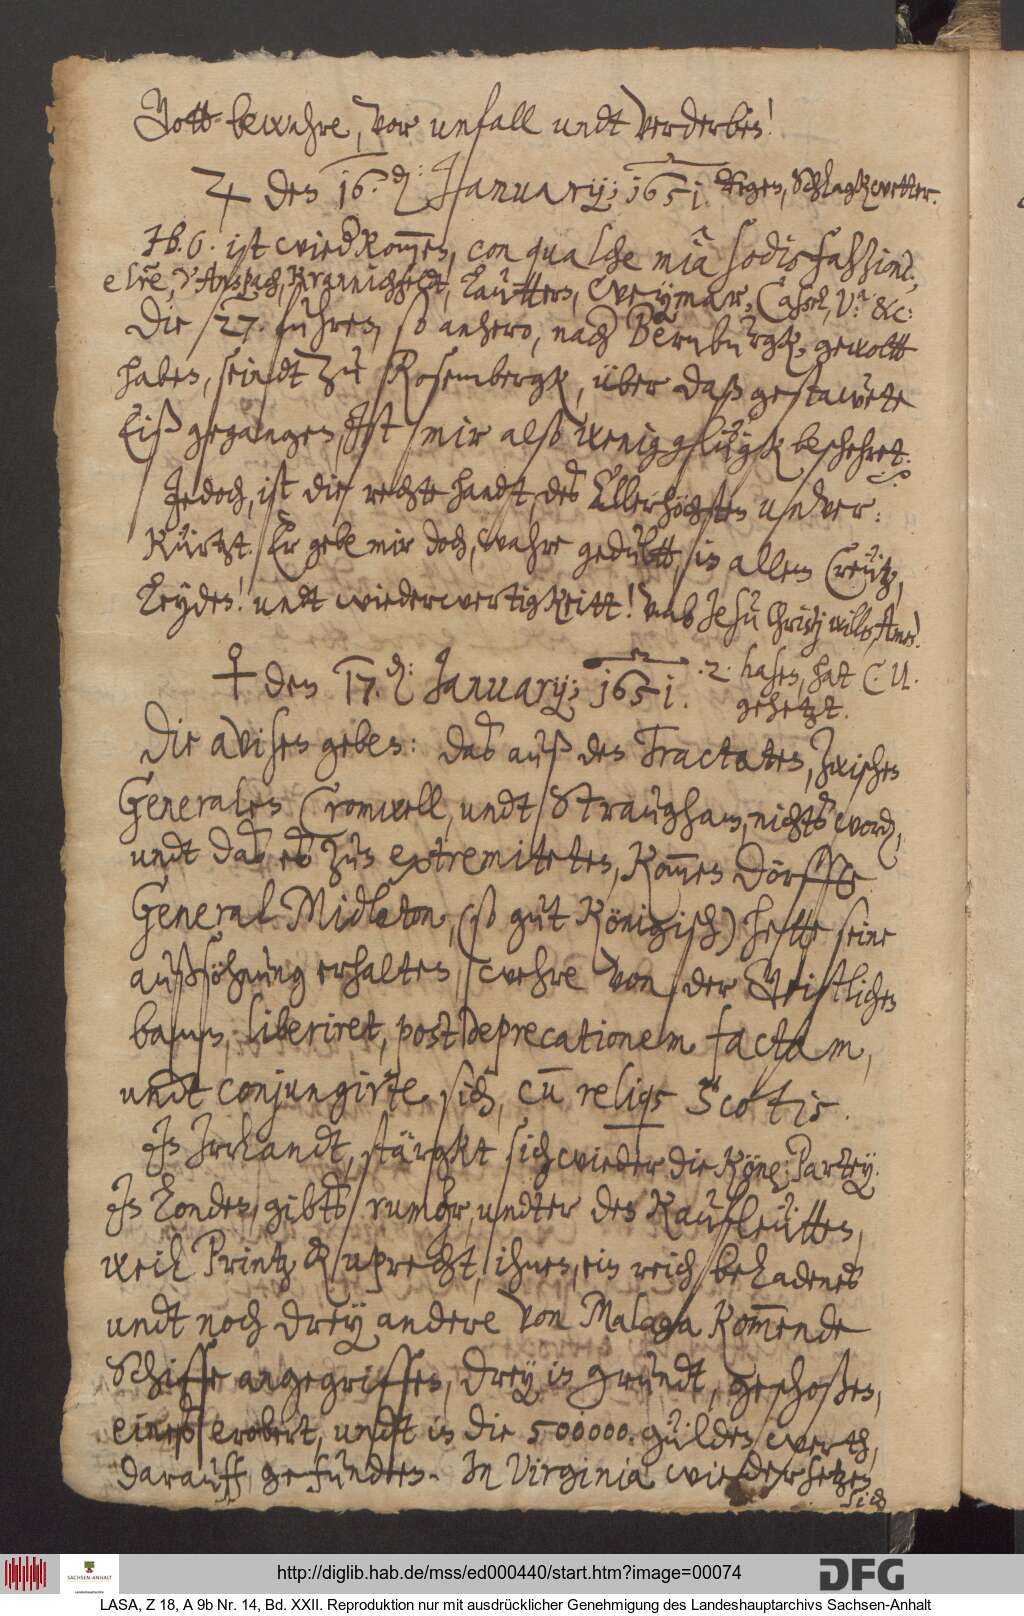 Gott bewahre, vor unfall undt verderben!
♃ den 16.den: January; 1651. Regen, Schlagkwetter.
Tb. G. ist wied kom̄en, con qualche mia sodisfassione,
Anspach, Krannichfeldt, Lautter, Weymar, Cassel, &c:
Die 27. fuhren, so anhero, nach Bernburgk, gewoltt
haben, seindt zu Rosembergk, über daß gestawete
Eiß gegangen. Ist mir also wenig glügk beschehret.
Jedoch, ist die rechte handt, des Allerhöchsten unver:
kürtzt. Er gebe mir doch, wahre gedultt, in allem Creütz,
Leyden! undt wiederwertigkeitt! umb Jesu Christj willen, Amen!
♀ den 17.den: January; 1651. 2 hasen, hat C. U.
gehetzt.
Die avisen geben: das auß den Tractaten, zwischen
Generalen Cromwell, undt Straugham, nichts word,
undt das es zun extremiteten, kom̄en dörffte.
General Midleton, (so gut Königisch) hette seine
außsöhnung erhalten, wehre von der Geistlichen
bann, liberiret, post deprecationem factam,
undt conjungirte sich, cū reliqs Scotis.
In Irrlandt, stärgkt sich wieder die Kön: Partey.
In Londen, gibts rumohr, undter den Kaufleütten,
weil Printz Ruprecht, ihnen, ein reich beladenes
undt noch drey andere von Malaga kom̄ende
Schiffe angegriffen, drey in grundt, geschoßen,
eines erobert, undt in die 500000. gülden werth,
darauff gefunden. In Virginia wiedersetzen
sich
http://diglib.hab.de/mss/ed000440/start.htm?image=00074
SACHSEN-ANHALT
DFG
LASA, Z 18, A 9b Nr. 14, Bd. XXII. Reproduktion nur mit ausdrücklicher Genehmigung des Landeshauptarchivs Sachsen-Anhalt